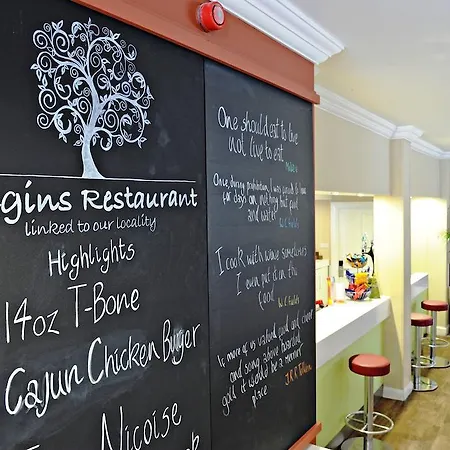 gins Restaurant
linked to our locality
Highlights
14oz T-Bone
Cajun Chicken Burger
Nicoise
One should eat to live
not live to eat
One, during prohibition, I was forced to live
for days on nothing but food
and water
W.C Fields
I cook with wine sometimes
I even put it in the
food
W.C Fields
If more of us valued food and cheer
and song above hoarded
gold it would be a merrier
place
J.R.R Tolkien